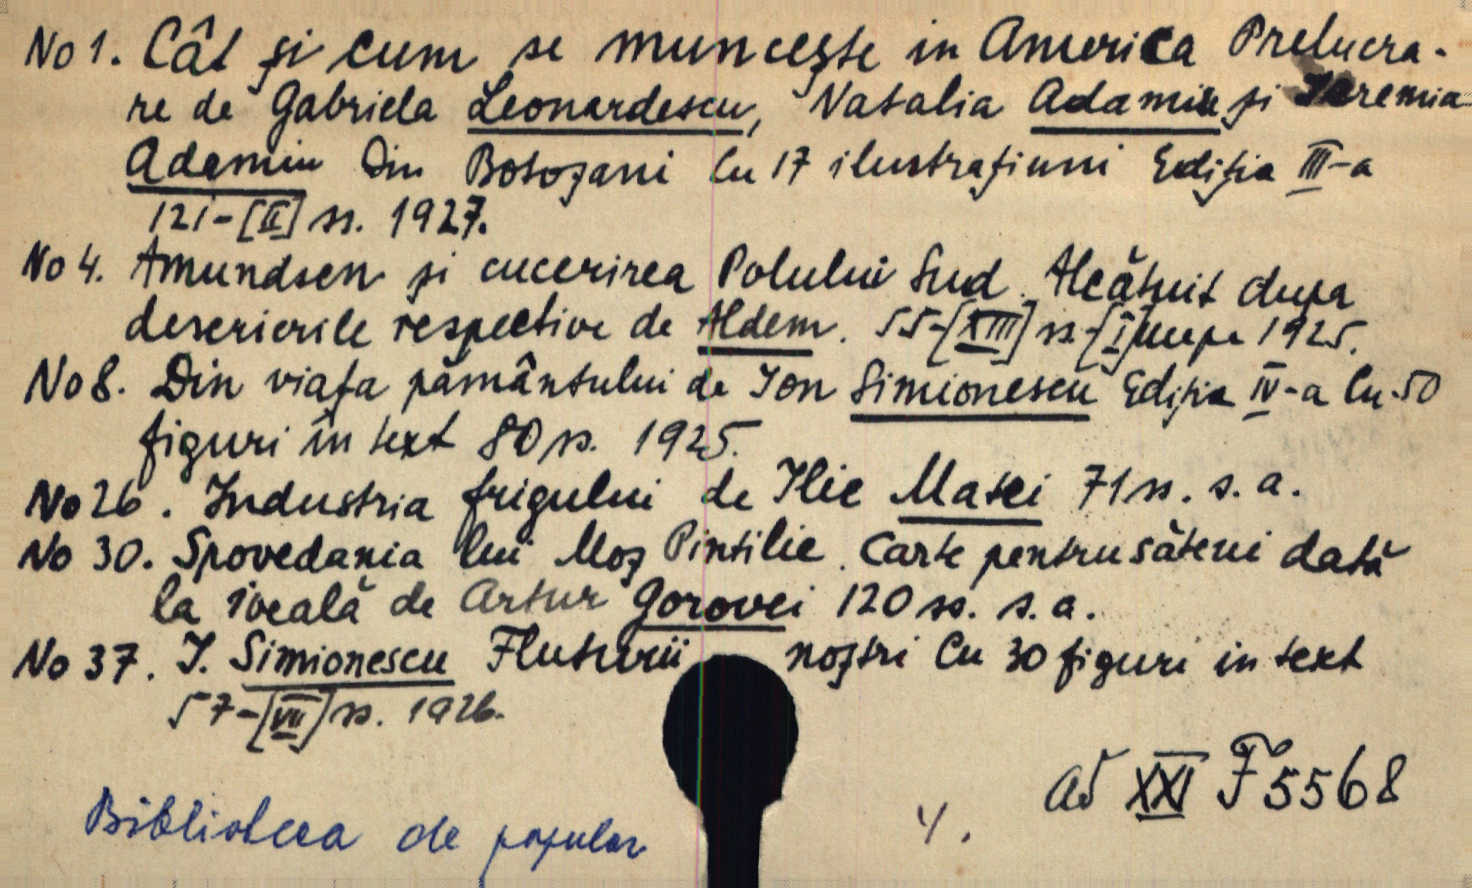 No 1. Cât și cum se muncește in America Prelucra-
re de Gabriela Leonardescu, Natalia Adamiu și Ieremia
Adamiu Din Botoșani Cu 17 ilustrațiuni Ediția III-a
121-[II] ss. 1927.
No 4. Amundsen și cucerirea Polului Sud. Alcătuit dupa
descrierile respective de Aldem. 55-[XIII] ss-[I] 1925.
No 8. Din viața pământului de Ion Simionescu Ediția IV-a Cu 50
figuri în text 80 ss. 1925.
No 26. Industria frigului de Ilie Matei 71 ss. s.a.
No 30. Spovedania lui Moș Pintilie. Carte pentru săteni dată
la iveală de Artur Gorovei 120 ss. s.a.
No 37. I. Simionescu Fluturii noștri Cu 30 figuri in text
57-[VII] ss. 1926.
ad XXI F 5568
Biblioteca de popular
4.